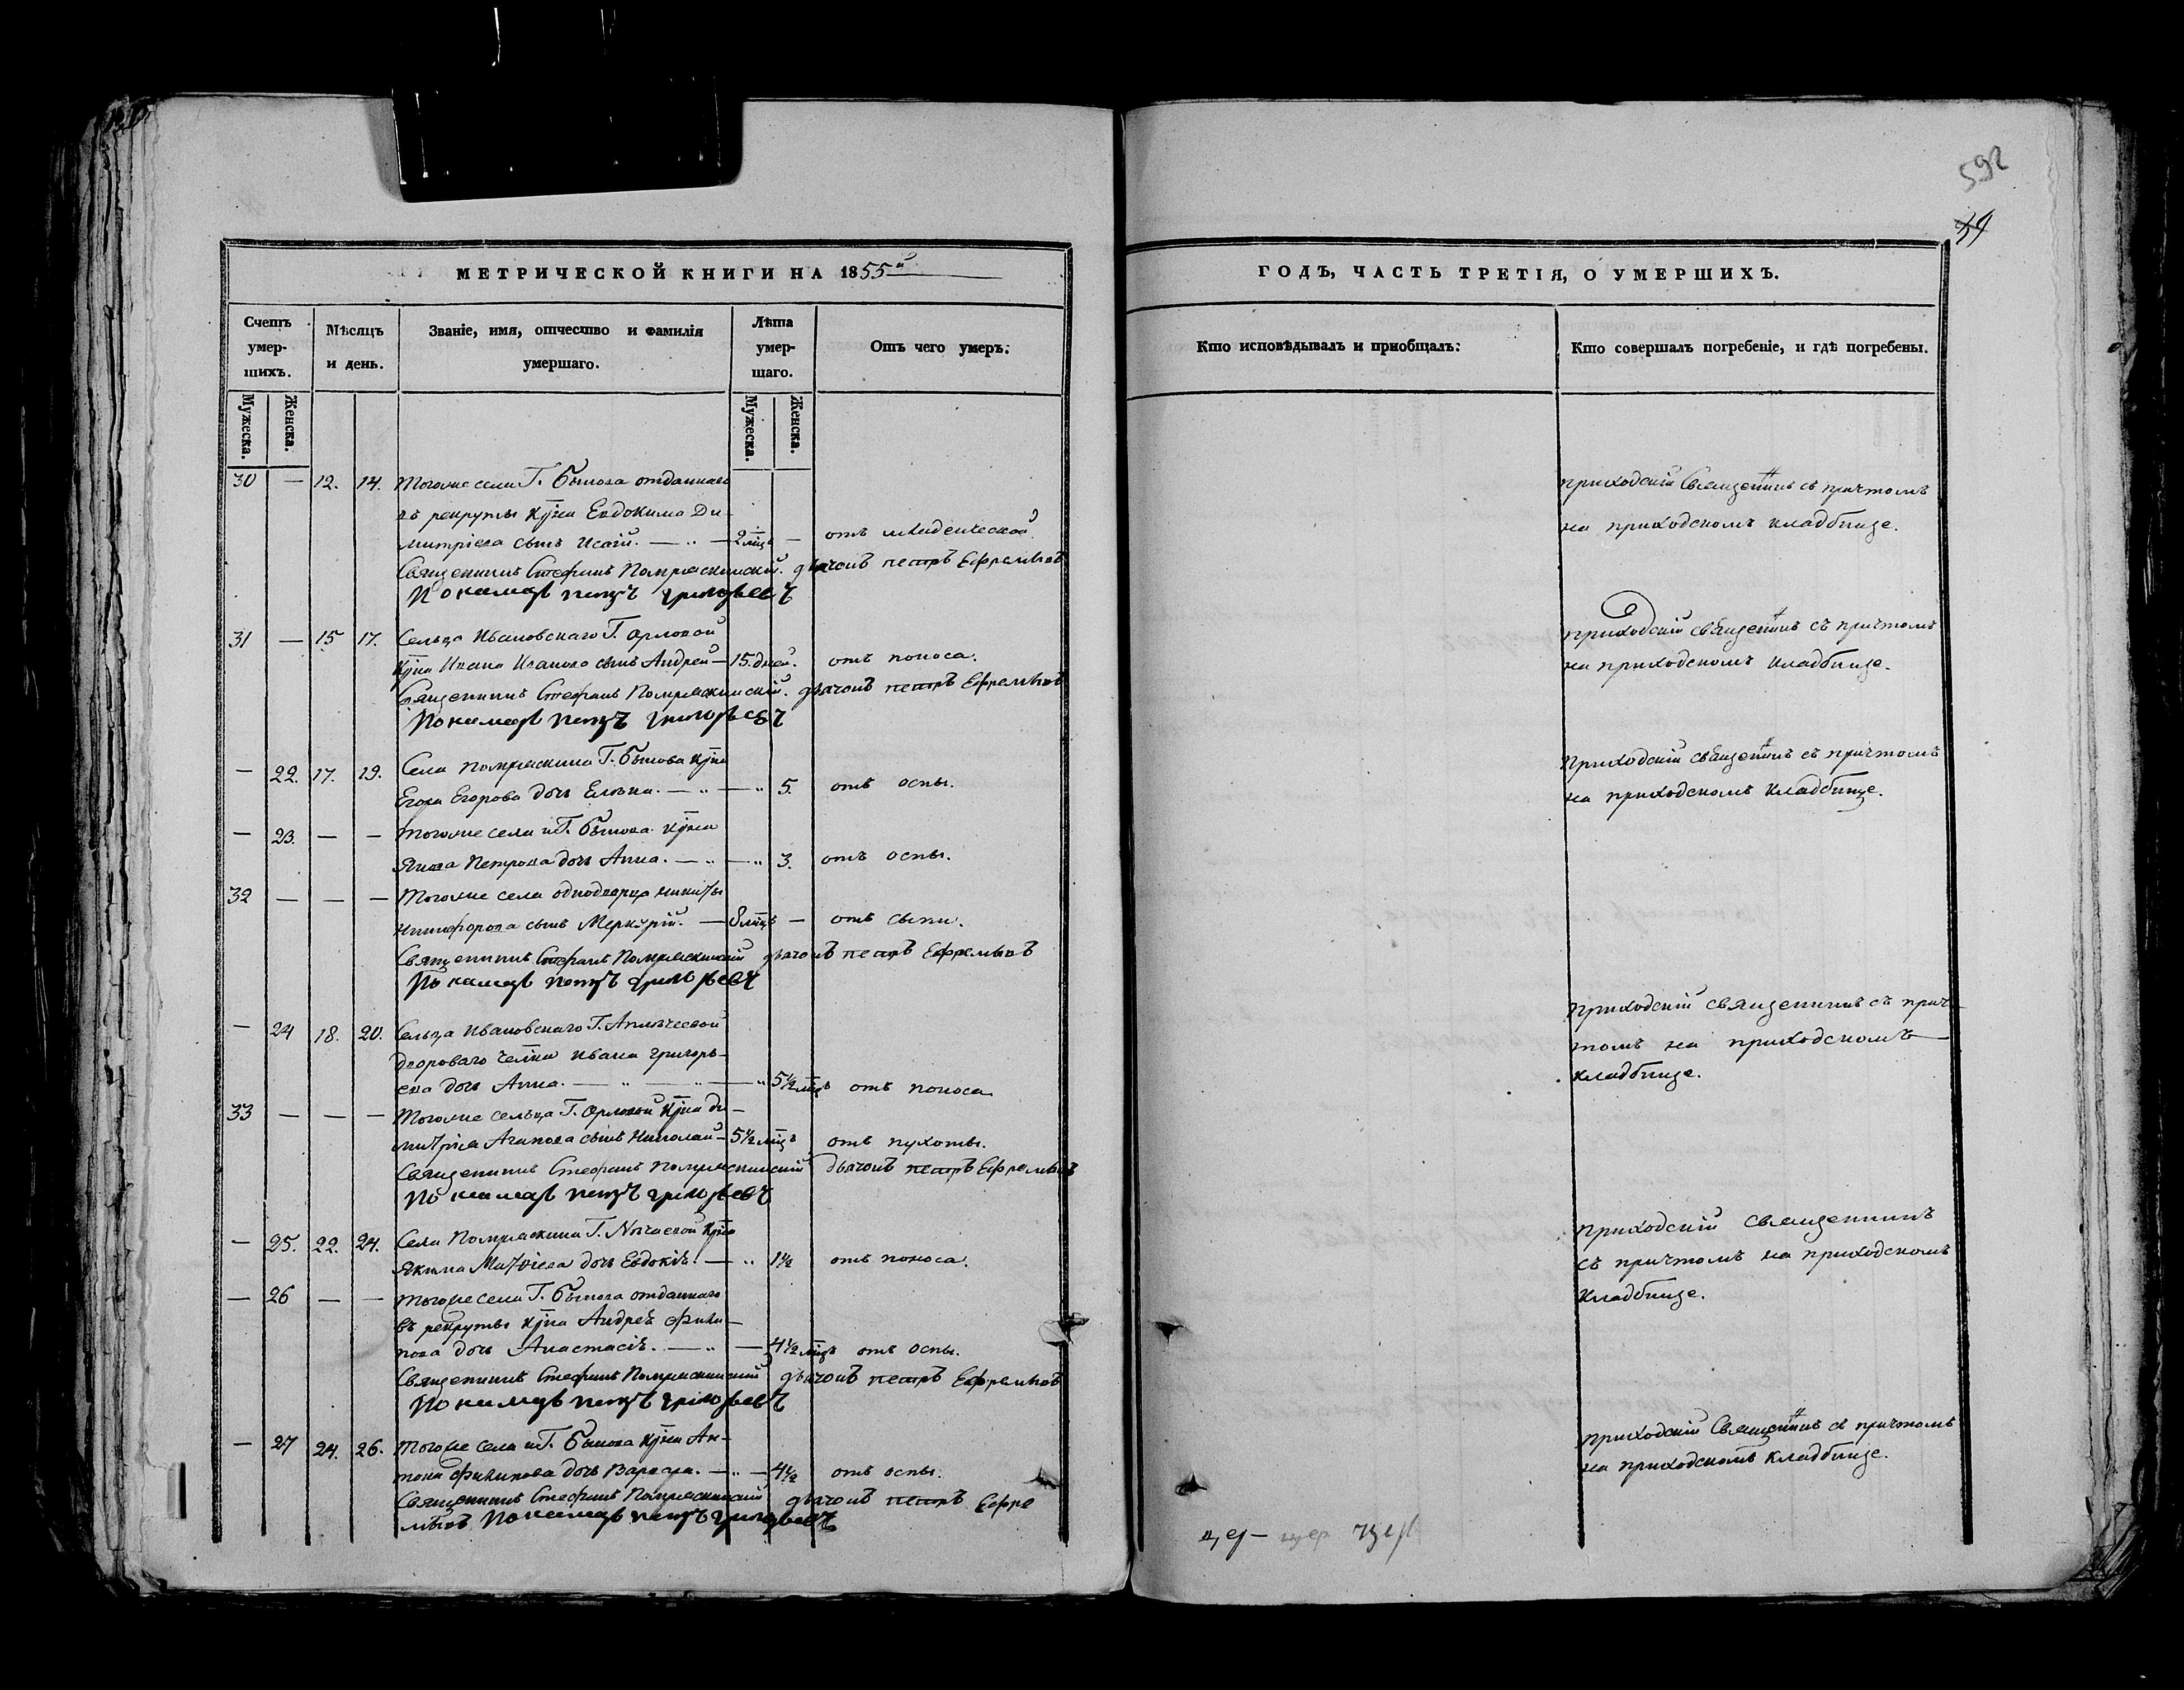 592
54
МЕТРИЧЕСКОЙ КНИГИ НА 1855й
ГОДЪ, ЧАСТЬ ТРЕТІЯ, О УМЕРШИХЪ.
Счетъ умер-шихъ.
Мѣсяцъ и день.
Званіе, имя, отчество и фамилія умершаго.
Лѣта умер-шаго.
Отъ чего умеръ:
Кто исповѣдывалъ и пріобщалъ:
Кто совершалъ погребеніе, и гдѣ погребены.
Мужеска. Женска.
Мужеска. Женска.
30 — 12. 14. Тогоже села Г. Бышова отданнаго
въ рекруты кр̃на Евдокима Ди-
митріева сынъ Исаій. — 2 мц̃ъ — отъ младенческой
Священникъ Стефанъ Помряскинскій. дьячокъ петръ Ефремовъ
Пономарь петръ григорьевъ
приходскій Священникъ съ причтомъ
на приходскомъ кладбищѣ.
31 — 15 17. Сельца Ивановскаго Г. Орловой
кр̃на Ивана Иванова сынъ Андрей — 15. дней. отъ поноса.
Священникъ Стефанъ Помряскинскій. дьячокъ петръ Ефремовъ
Пономарь петръ григорьевъ
приходскій священникъ съ причтомъ
на приходскомъ кладбищѣ.
— 22. 17. 19. Села Помряскина Г. Бышова кр̃на
Егора Егорова дочь Елена. — 5. отъ оспы.
Приходскій священникъ съ причтомъ
на приходскомъ кладбищѣ.
— 23. — — Тогоже села и Г. Бышова кр̃на
Якова Петрова дочь Анна. — 3. отъ оспы.
32 — — — Тогоже села однодворца Никиты
Никифорова сынъ Меркурій. — 8 мц̃ъ — отъ сыпи.
Священникъ Стефанъ Помряскинскій дьячокъ петръ Ефремовъ
Пономарь петръ григорьевъ
— 24 18. 20. Сельца Ивановскаго Г.
двороваго чел̃ка Ивана Григорь-
ева дочь Анна. — 5½ мц̃ъ отъ поноса
Приходскій священникъ съ прич-
томъ на приходскомъ
кладбищѣ.
33 — — — Тогоже сельца Г. Орловой кр̃на Ди-
митрія Агапова сынъ Николай — 5½ мц̃ъ отъ пухоты.
Священникъ Стефанъ Помряскинскій дьячокъ петръ Ефремовъ
Пономарь петръ григорьевъ
— 25. 22. 24. Села Помряскина Г. кр̃на
Якима Матвіева дочь Евдокія. — 1½ отъ поноса.
Приходскій священникъ
съ причтомъ на приходскомъ
кладбищѣ.
— 26 — — Тогоже села Г. Бышова отданнаго
въ рекруты кр̃на Андрея Фили-
пова дочь Анастасія. — 4½ мц̃ъ отъ оспы.
Священникъ Стефанъ Помряскинскій дьячокъ петръ Ефремовъ
Пономарь петръ григорьевъ
— 27 24. 26. Тогоже села и Г. Бышова кр̃на Ан-
тона Филипова дочь Варвара. — 4½ отъ оспы.
Священникъ Стефанъ Помряскинскій дьячокъ петръ Ефре
мовъ Пономарь петръ григорьевъ
приходскій Священникъ съ причтомъ
на приходскомъ кладбищѣ.